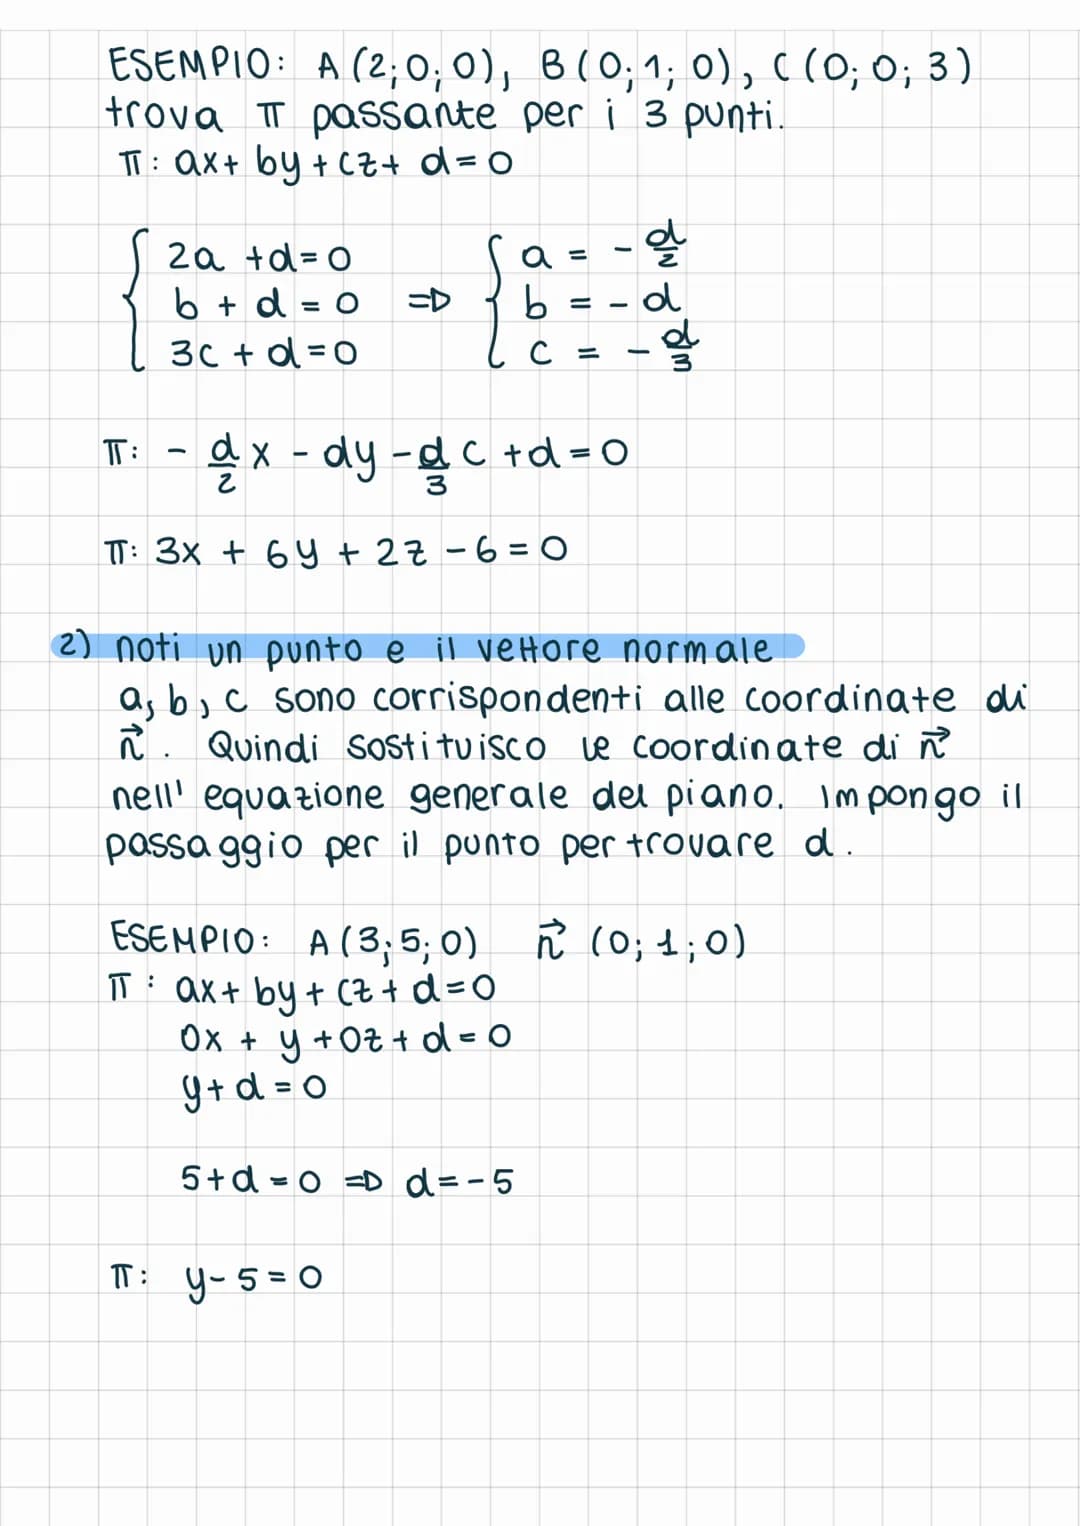 ESEMPIO: A (2; 0; 0), B (0; 1; 0), C (0; 0; 3)
trova π passante per i 3 punti.
π: ax + by + cz + d = 0
{ 2a + d = 0 => { a = - d/2
b + d = 0 b = - d
3c + d = 0 c = - d/3
π: - d/2 x - dy - d/3 c + d = 0
π: 3x + 6y + 2z - 6 = 0
2) noti un punto e il vettore normale
a, b, c sono corrispondenti alle coordinate di
n⃗. Quindi sostituisco le coordinate di n⃗
nell' equazione generale del piano. Impongo il
passaggio per il punto per trovare d.
ESEMPIO: A (3; 5; 0) n⃗ (0; 1; 0)
π: ax + by + cz + d = 0
0x + y + 0z + d = 0
y + d = 0
5 + d = 0 => d = - 5
π: y - 5 = 0